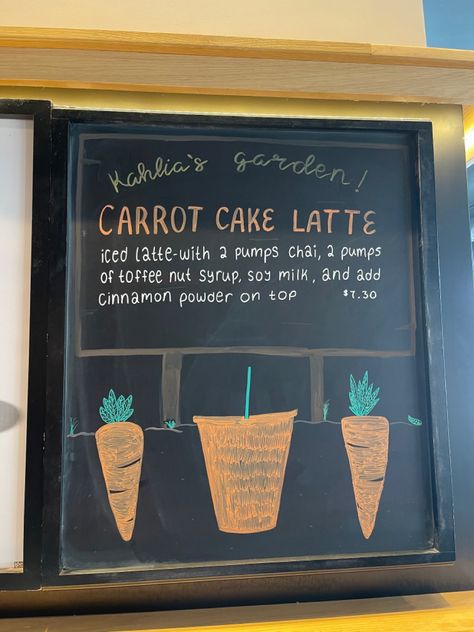 Kahlia's garden!
CARROT CAKE LATTE
iced latte-with 2 pumps chai, 2 pumps
of toffee nut syrup, soy milk, and add
cinnamon powder on top $7.30